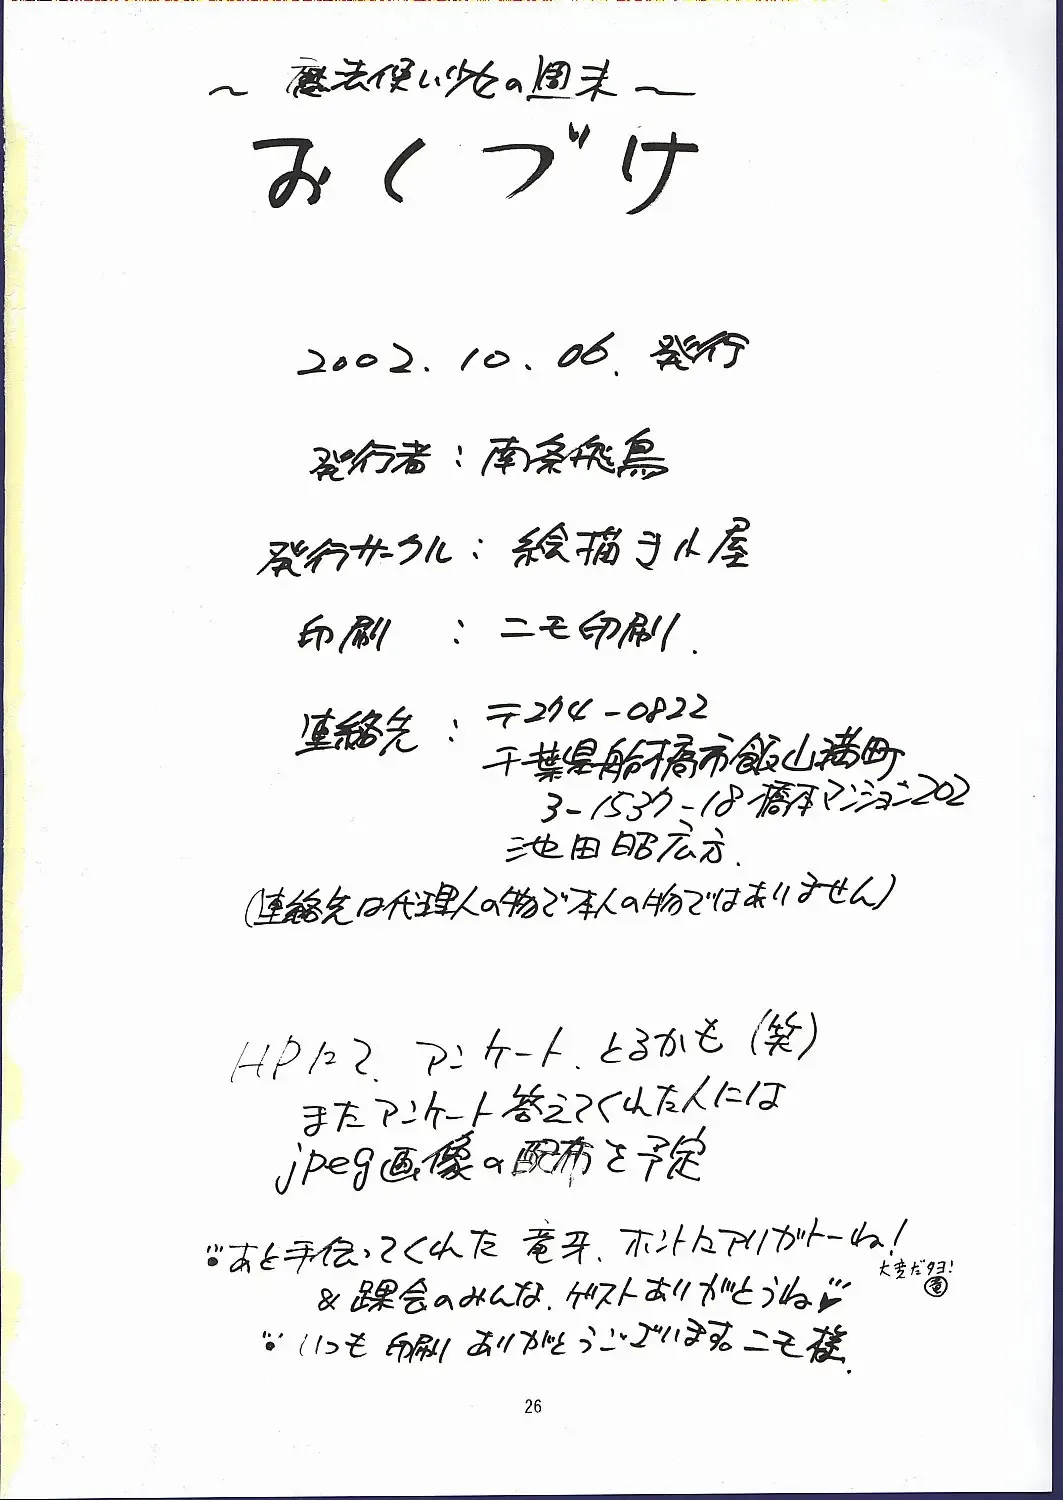 ～魔法使い少女の週末～
おくづけ
2002.10.06.発行
発行者：南条飛鳥
発行サークル：絵描き小屋
印刷：ニモ印刷.
連絡先：〒274-0822
千葉県船橋市飯山満町
3-1537-18橋本マンション202
池田昭広方.
(連絡先は代理人の物で本人の物ではありません)
HPにて.アンケート.とるかも(笑)
またアンケート答えてくれた人には
jpeg画像の配布を予定
あと手伝ってくれた竜牙.ホントにアリガトーね!
大変だタヨ!
竜
&課会のみんな.ゲストありがとうね
いつも印刷ありがとうございます。ニモ様.
26